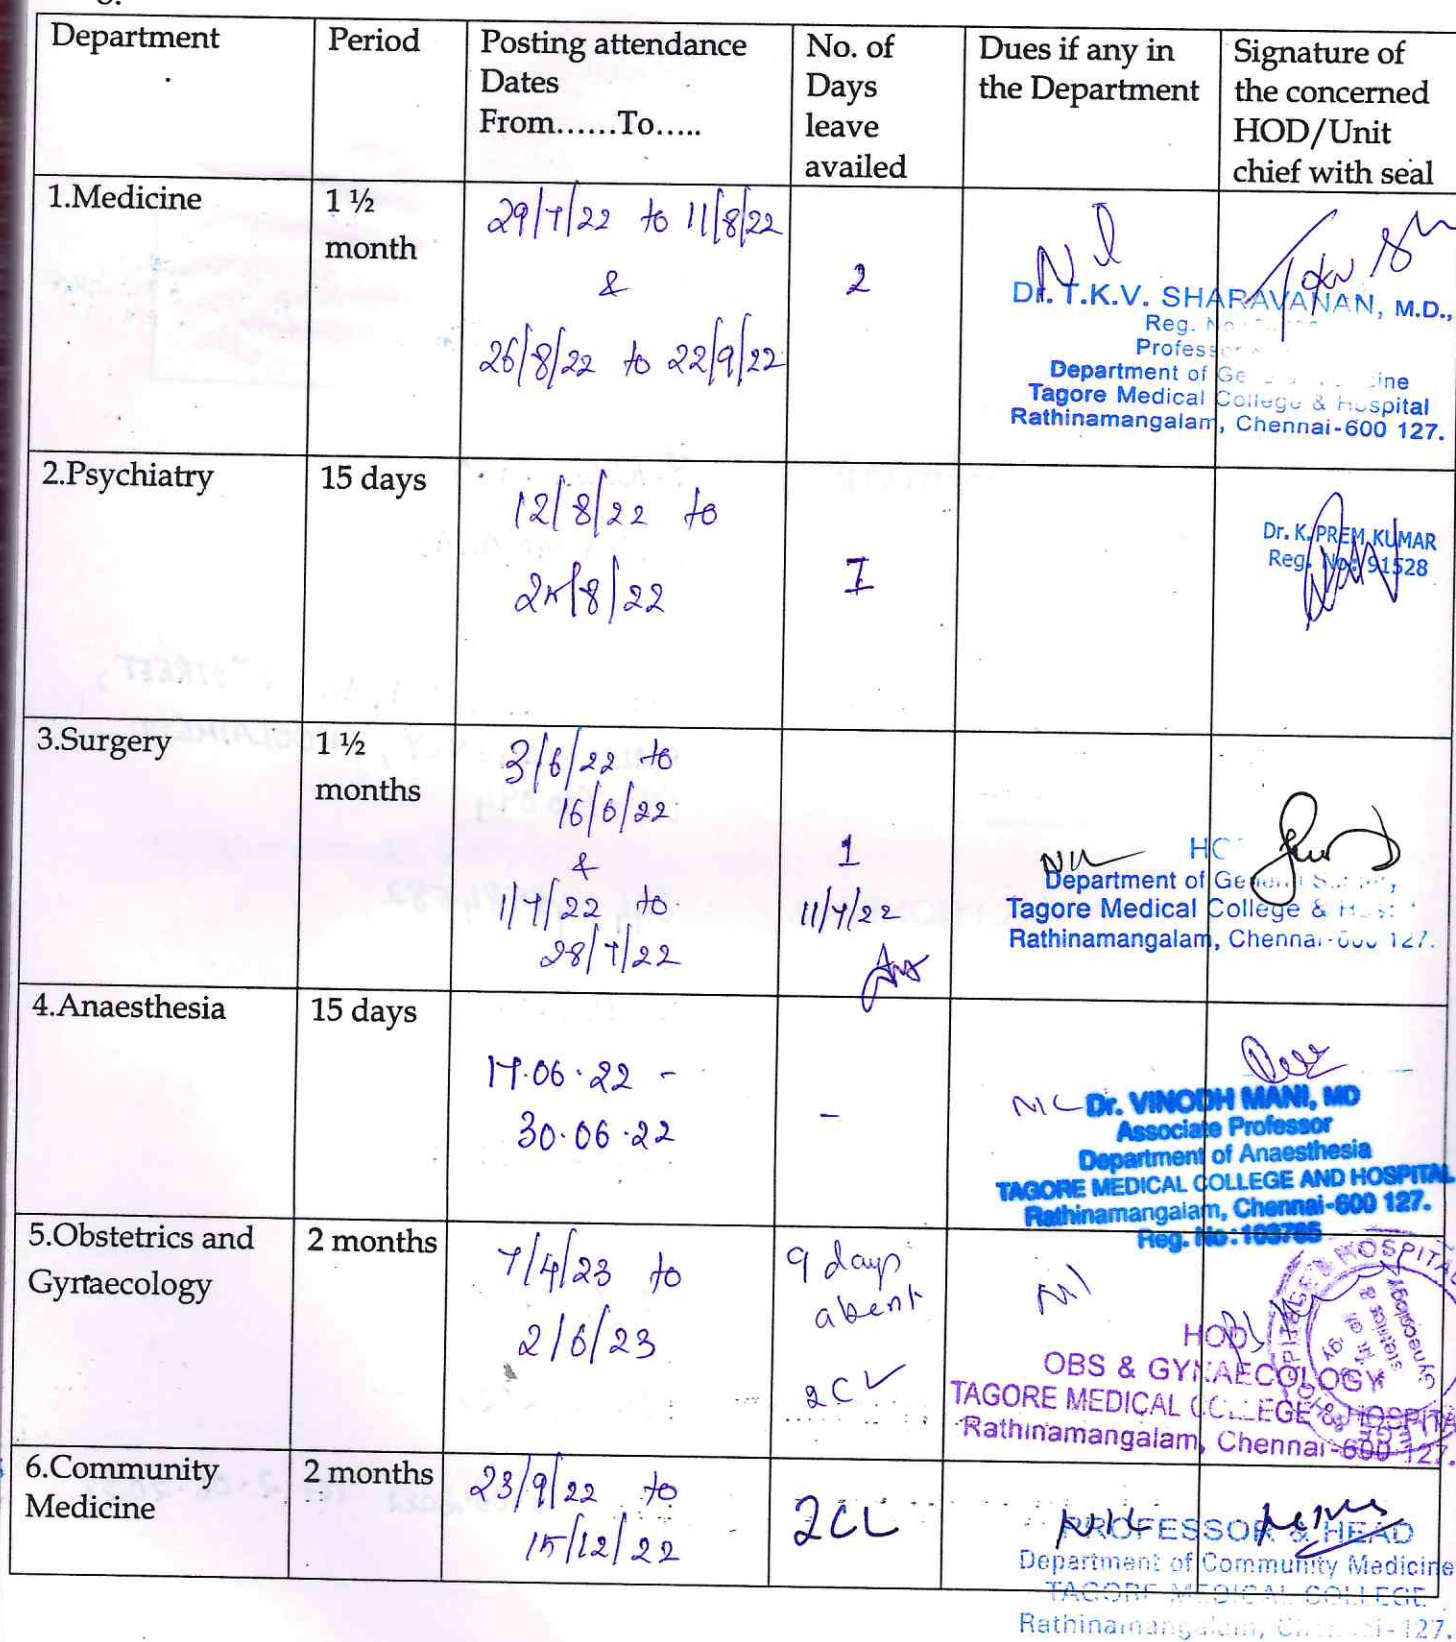 Department
Period
Posting attendance
Dates
From......To.....
No. of
Days
leave
availed
Dues if any in
the Department
Signature of
the concerned
HOD/Unit
chief with seal
1.Medicine
1 ½
month
29/7/22 to 11/8/22
&
26/8/22 to 22/9/22
2
Nil
Dr. T.K.V. SHARAVANAN, M.D.,
Reg.
Department of
Tagore Medical College & Hospital
Rathinamangalam, Chennai-600 127.
2.Psychiatry
15 days
12/8/22 to
25/8/22
1
Dr. K. PREM KUMAR
Reg. No: 91528
3.Surgery
1 ½
months
3/6/22 to
16/6/22
&
1/7/22 to
28/7/22
1
11/7/22
Nil
Department of General
Tagore Medical College &
Rathinamangalam, Chennai-600 127.
4.Anaesthesia
15 days
17.06.22 -
30.06.22
-
NIL
Dr. VINODH MANI, MD
Associate Professor
Department of Anaesthesia
TAGORE MEDICAL COLLEGE AND HOSPITAL
Rathinamangalam, Chennai-600 127.
Reg. No:103765
5.Obstetrics and
Gynaecology
2 months
7/4/23 to
2/6/23
9 days
absent
2CL
Nil
HOD
OBS & GYNAECOLOGY
TAGORE MEDICAL COLLEGE & HOSPITAL
Rathinamangalam, Chennai-600 127.
6.Community
Medicine
2 months
23/9/22 to
15/12/22
2CL
NIL
PROFESSOR & HEAD
Department of Community Medicine
TAGORE MEDICAL COLLEGE
Rathinamangalam, Chennai-127.